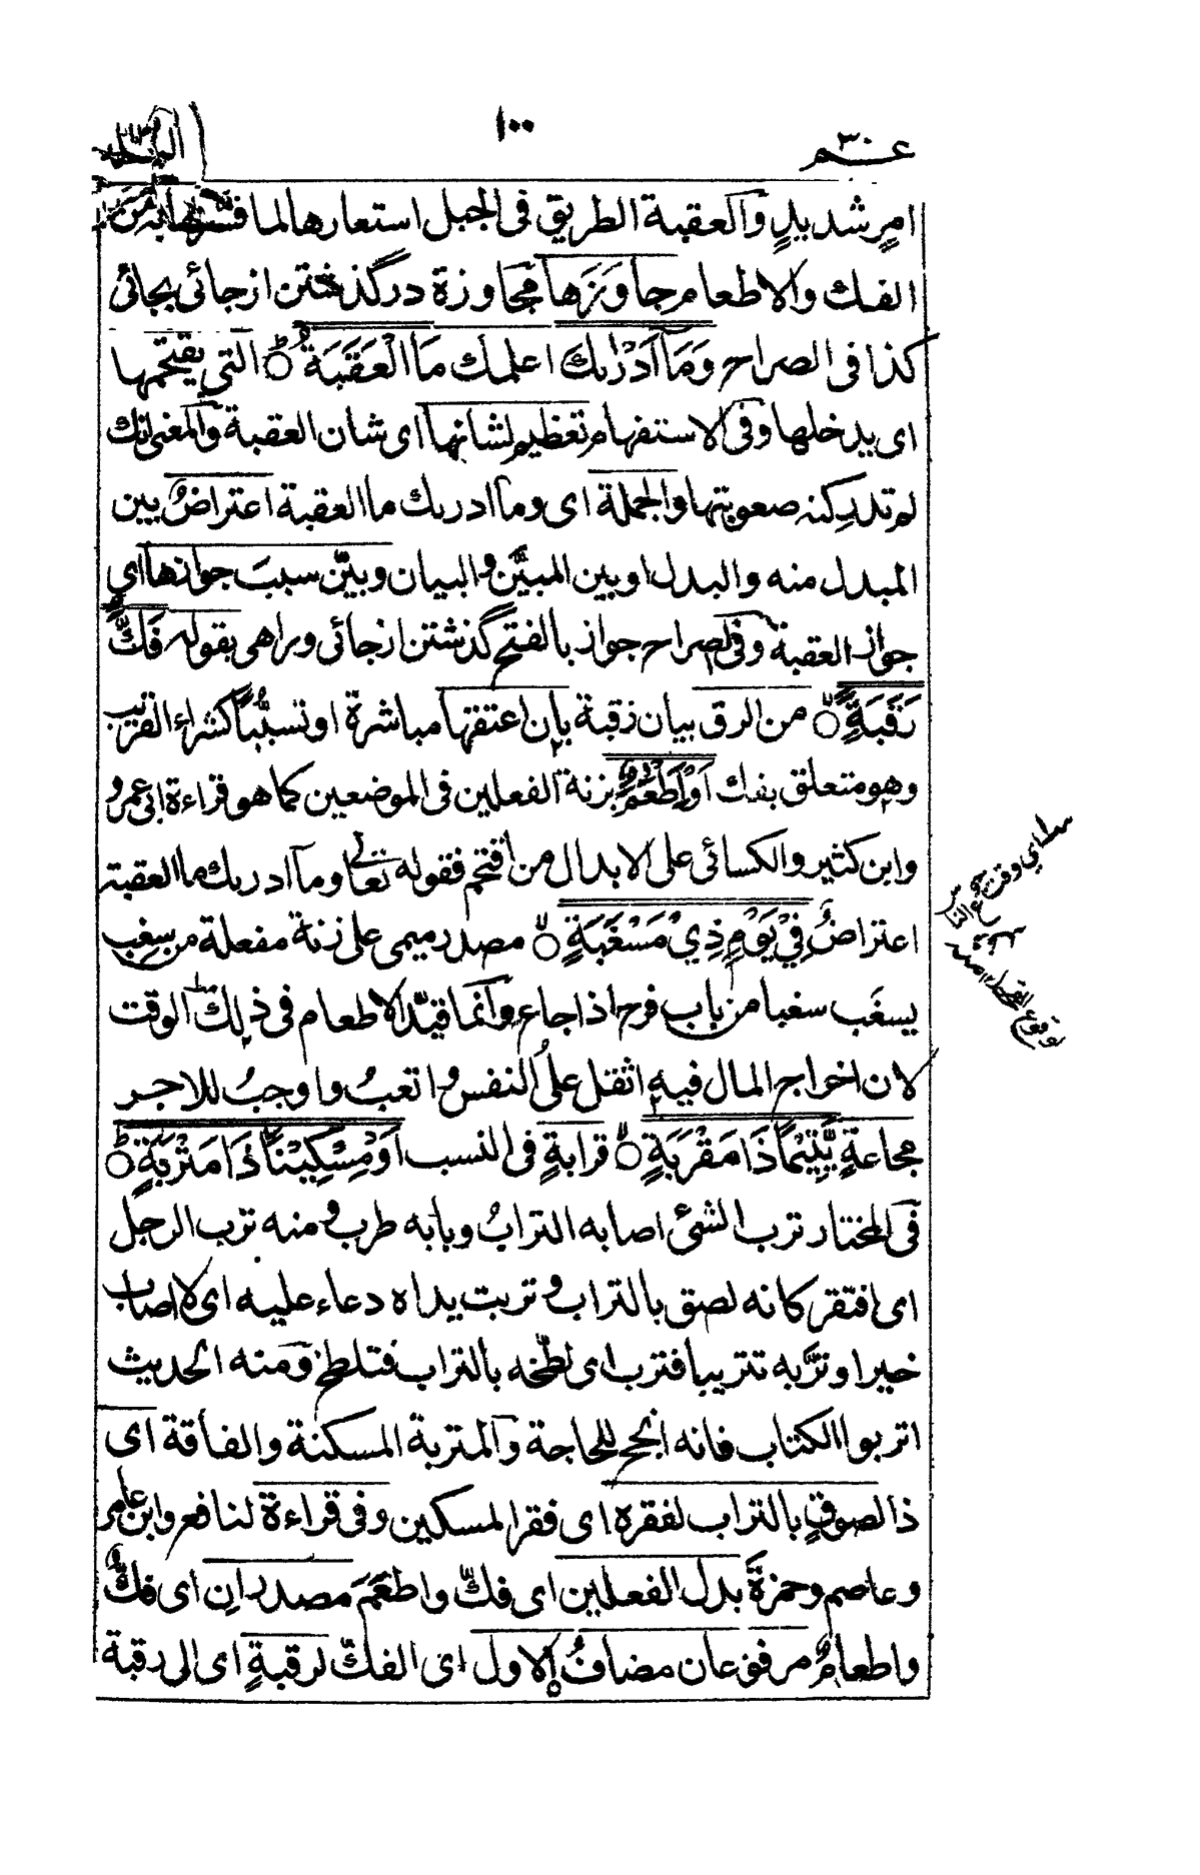 عــم ٣٠
١٠٠
البلد
امرٍ شديدٍ والعقبة الطريق فى الجبل استعارها لما فسرها به من
الفك والاطعام جاوَزَها مجاوزة درگذشتن از جائى بجائى
كذا فى الصراح وَمَآ اَدْرٰىكَ اعلمك مَا الْعَقَبَةُ ۝ التى يقتحمها
اى يدخلها وفى الاستفهام تعظيم لشانها اى شان العقبة والمعنى انك
لم تدرِ كنه صعوبتها والجملة اى وما ادرىك ما العقبة اعتراضٌ بين
المبدل منه والبدل او بين المبيَّن والبيان وبيّن سببَ جوازها اى
جواز العقبة وفى الصراح جواز بالفتح گذشتن از جائى وراهى بقوله فَكُّ
رَقَبَةٍ ۝ من الرق بيان رقبة بان اعتقها مباشرة او تسبُّبًا كشراء القريب
وهو متعلق بفك اَوْ اَطْعَمَ بزنة الفعلين فى الموضعين كما هو قراءة ابى عمرو
وابن كثير والكسائى على الابدال من اقتحم فقوله تعالى وما ادرىك ما العقبة
اعتراضٌ فِيْ يَوْمٍ ذِيْ مَسْغَبَةٍ ۝ مصدر ميمى على زنة مفعلة من سغِب
يسغَب سغبا من باب فرح اذا جاع وانما قيّد الاطعام فى ذلك الوقت
لان اخراج المال فيه اثقل على النفس واتعبُ واوجبُ للاجر
مجاعةٍ يَّتِيْمًا ذَا مَقْرَبَةٍ ۝ قرابةٍ فى النسب اَوْ مِسْكِيْنًا ذَا مَتْرَبَةٍ ۝
فى المختار ترب الشئ اصابه الترابُ وبابه طرب ومنه ترب الرجل
اى افتقر كانه لصق بالتراب و تربت يداه دعاء عليه اى لا اصاب
خيرا وترَّبه تتريبا فترب اى لطّخه بالتراب فتلطخ ومنه الحديث
اتربوا الكتاب فانه انجح للحاجة والمتربة المسكنة والفاقة اى
ذا لصوقٍ بالتراب لفقره اى فقر المسكين وفى قراءة لنافع وابن عامر
وعاصم وحمزةَ بدل الفعلين اى فكَّ واطعَمَ مصدران اى فكٌّ
واطعامٌ مرفوعان مضافٌ الاول اى الفكّ لرقبةٍ اى الى رقبة